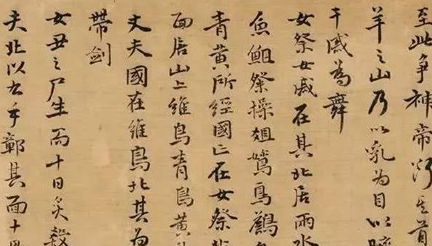 至此争神帝斷其首
羊之山乃以乳為目以臍
干戚為舞
女祭女戚在其北居兩水
魚祭操俎鳥
青黃所經國亡在女祭
面居山上維鳥青鳥黃
丈夫國在維鳥北其為
帶劍
女丑之尸生而十日炙殺
夫北以右手鄣其面十日